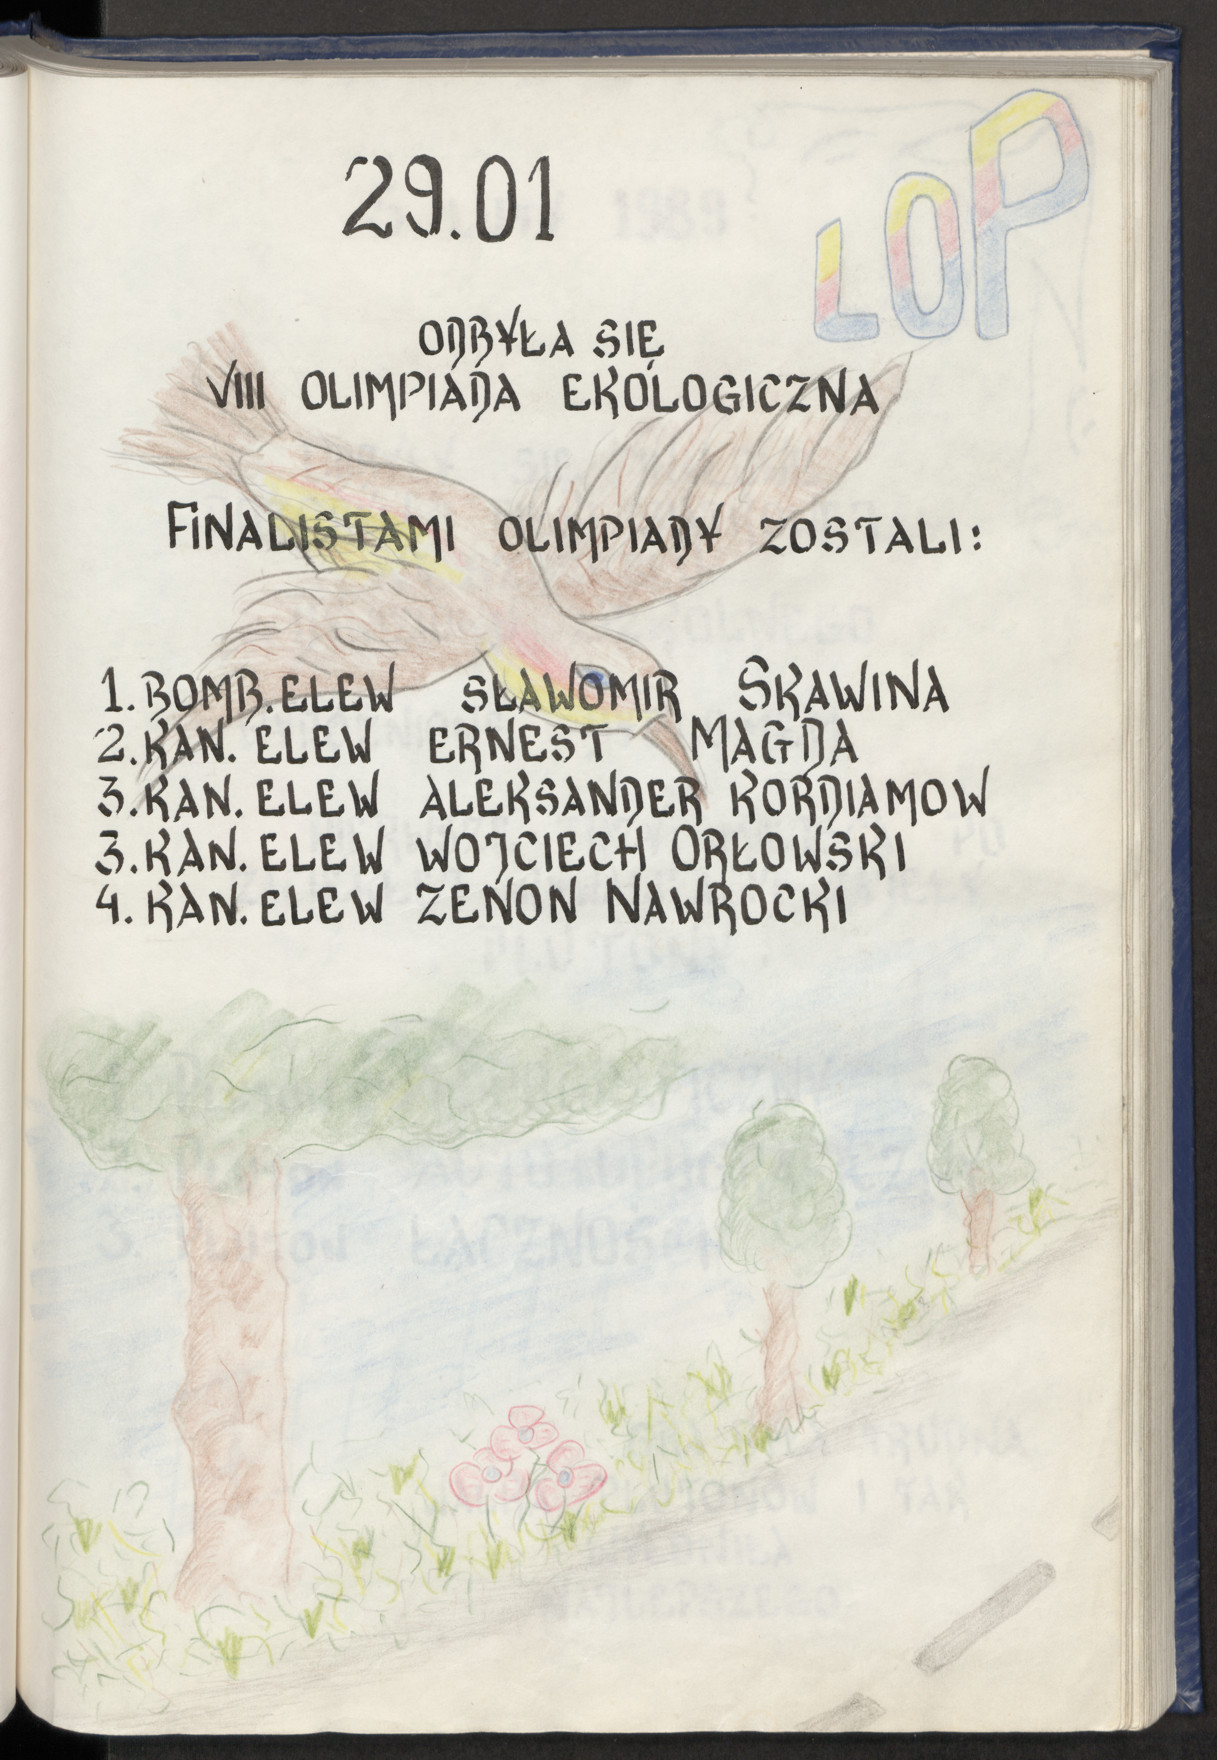 LOP
29.01
ODBYŁA SIĘ
VIII OLIMPIADA EKOLOGICZNA
FINALISTAMI OLIMPIADY ZOSTALI:
1. BOMB. ELEW SŁAWOMIR SKAWINA
2. KAN. ELEW ERNEST MAGDA
3. KAN. ELEW ALEKSANDER KORDIAMOW
3. KAN. ELEW WOJCIECH ORŁOWSKI
4. KAN. ELEW ZENON NAWROCKI